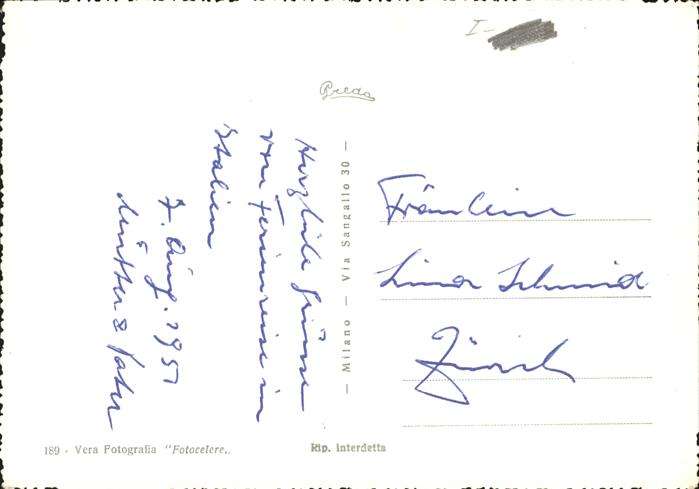 I-
Breda
Herzliche Grüsse
von Ferienreise in
Italien
7. Aug. 1951
Mutter & Vater
— Milano — Via Sangallo 30 —
Fräulein
Schmid
Zürich
189 - Vera Fotografia "Fotocelere„
Rip. interdetta